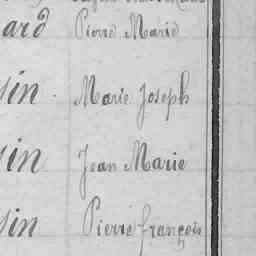 ard Pierre Marie
sin. Marie Joseph
sin Jean Marie
sin Pierre françois